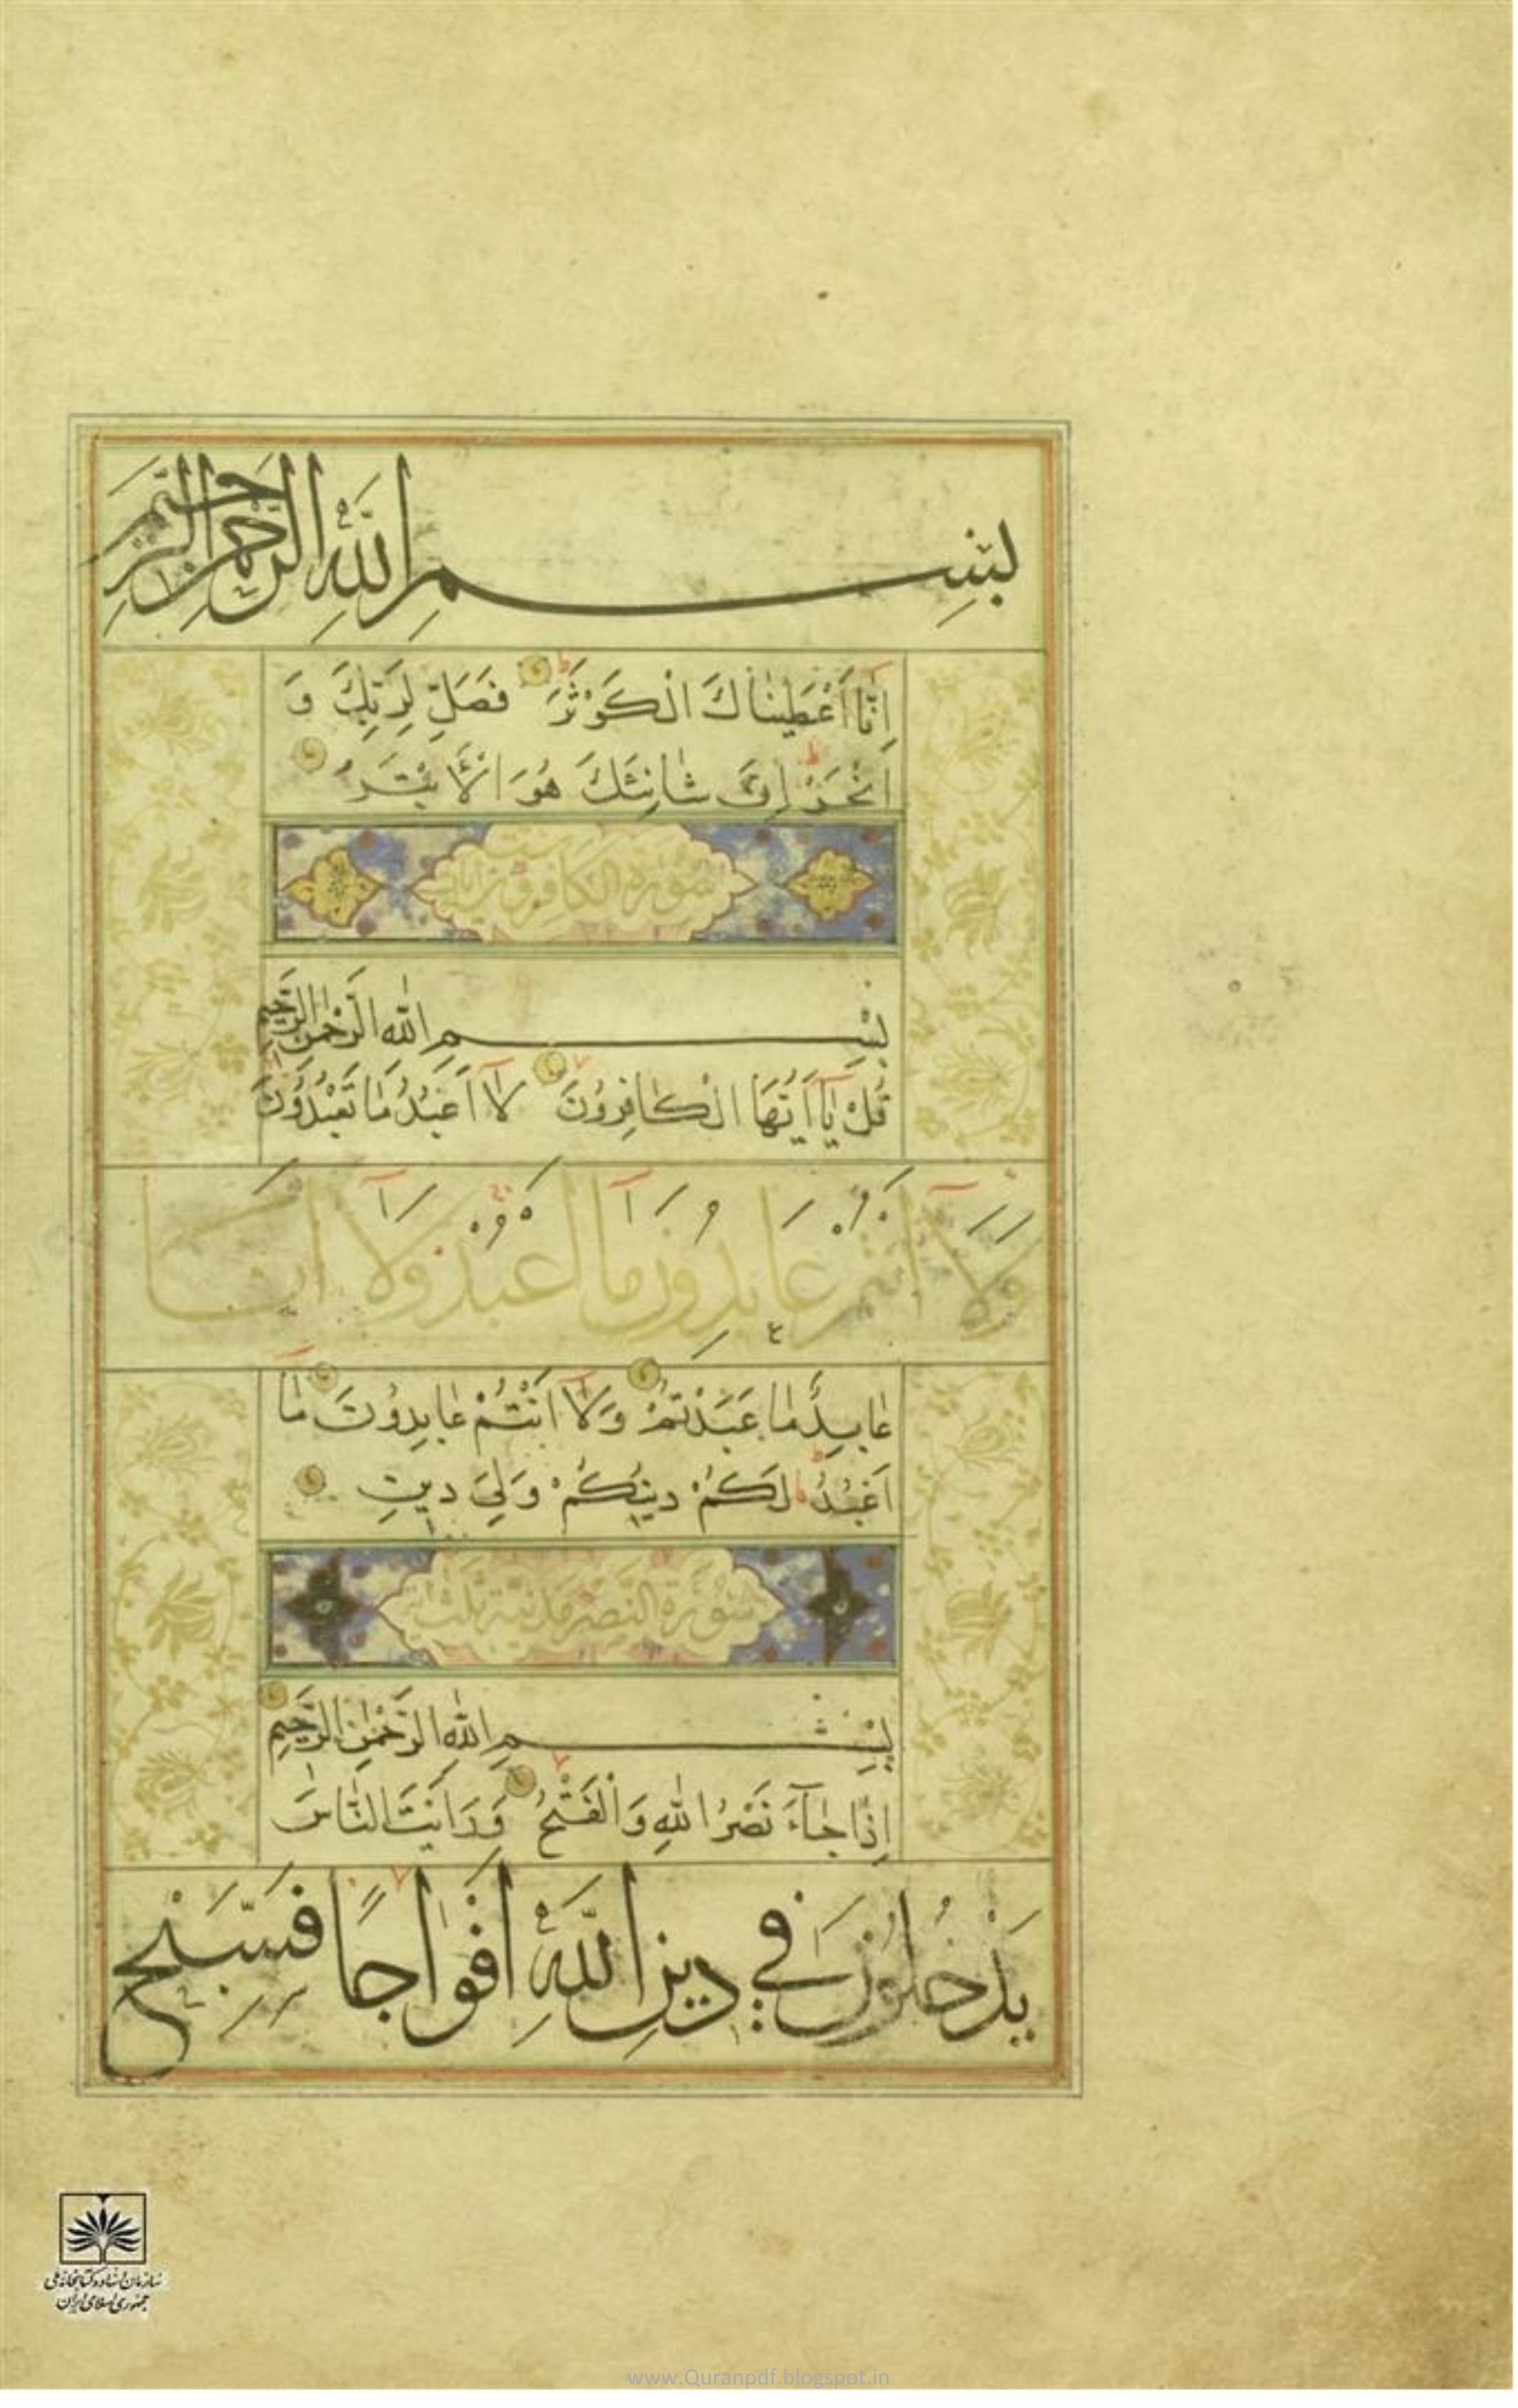 بِسْمِ اللَّهِ الرَّحْمٰنِ الرَّحِيمِ
اِنّٰا اَعْطَيْنٰاكَ الْكَوْثَرَ فَصَلِّ لِرَبِّكَ وَ
انْحَرْ اِنَّ شٰانِئَكَ هُوَ الْاَبْتَرُ
سورة الكافرون
بِسْمِ اللّٰهِ الرَّحْمٰنِ الرَّحِيمِ
قُلْ يٰآ اَيُّهَا الْكٰافِرُونَ لٰآ اَعْبُدُ مٰا تَعْبُدُونَ
وَلَآ اَنْتُمْ عَابِدُونَ مَآ اَعْبُدُ وَلَآ اَنَا
عٰابِدٌ مٰا عَبَدْتُمْ وَلٰآ اَنْتُمْ عٰابِدُونَ مٰآ
اَعْبُدُ لَكُمْ دِينُكُمْ وَلِيَ دِينِ
سورة النصر مدنية ثلث
بِسْمِ اللّٰهِ الرَّحْمٰنِ الرَّحِيمِ
اِذٰا جٰآءَ نَصْرُ اللّٰهِ وَالْفَتْحُ وَرَاَيْتَ النّٰاسَ
يَدْخُلُونَ فِي دِينِ اللَّهِ اَفْوٰاجًا فَسَبِّحْ
سازمان اسناد و کتابخانه ملی
جمهوری اسلامی ایران
www.Quranpdf.blogspot.in